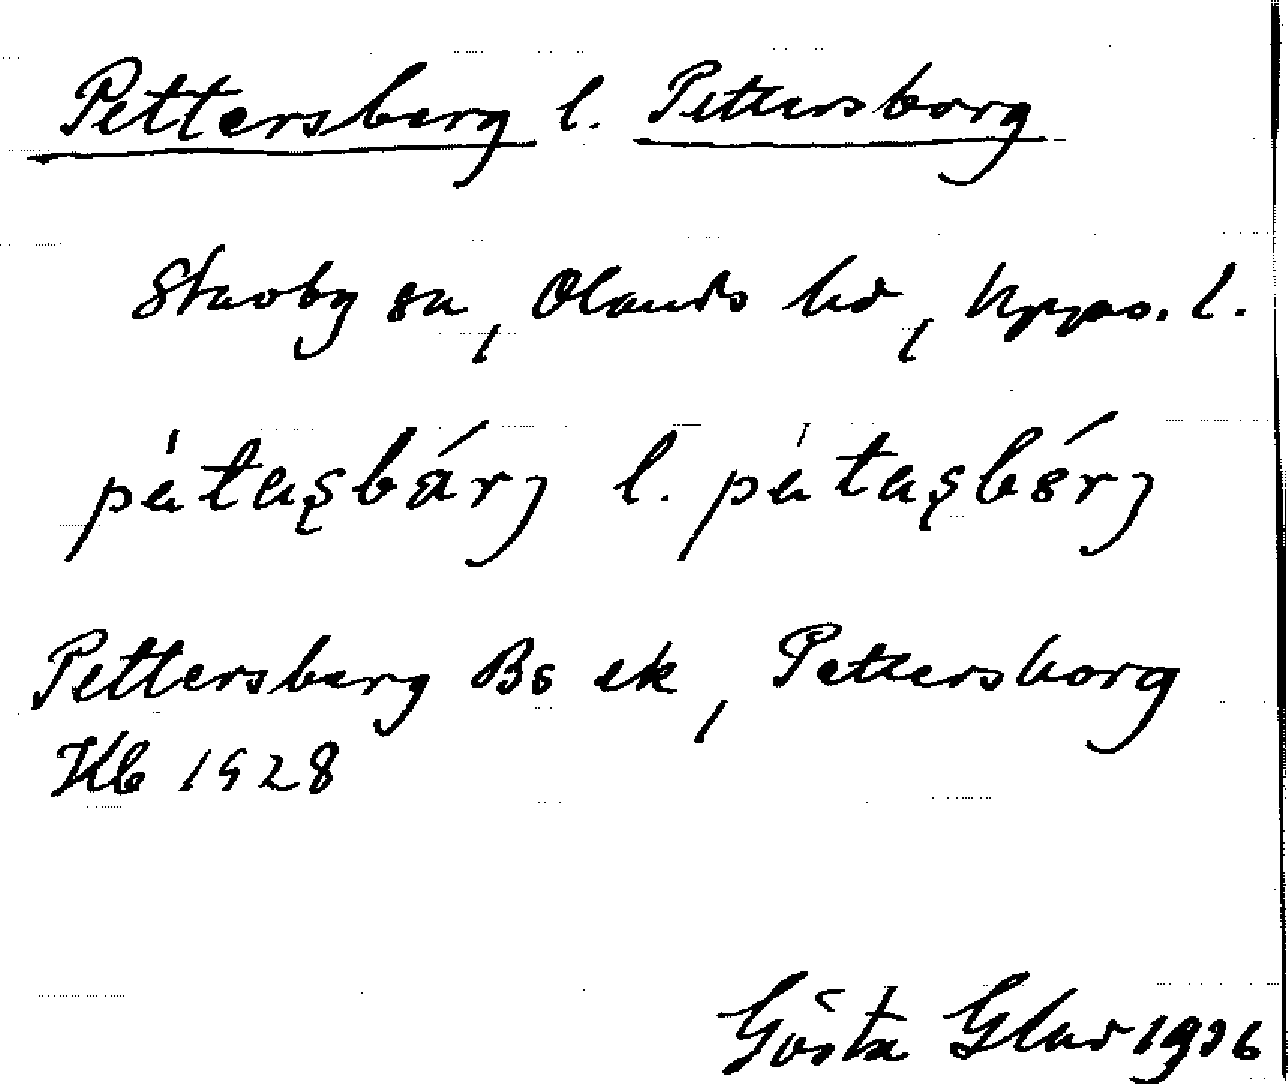 Pettersberg l. Pettersborg
Stavby sn, Olands hd, Upps. l.
pètaşbárj l. pètaşbórj
Pettersberg Bs ek, Pettersborg
Kb 1928
Gösta Glad 1936